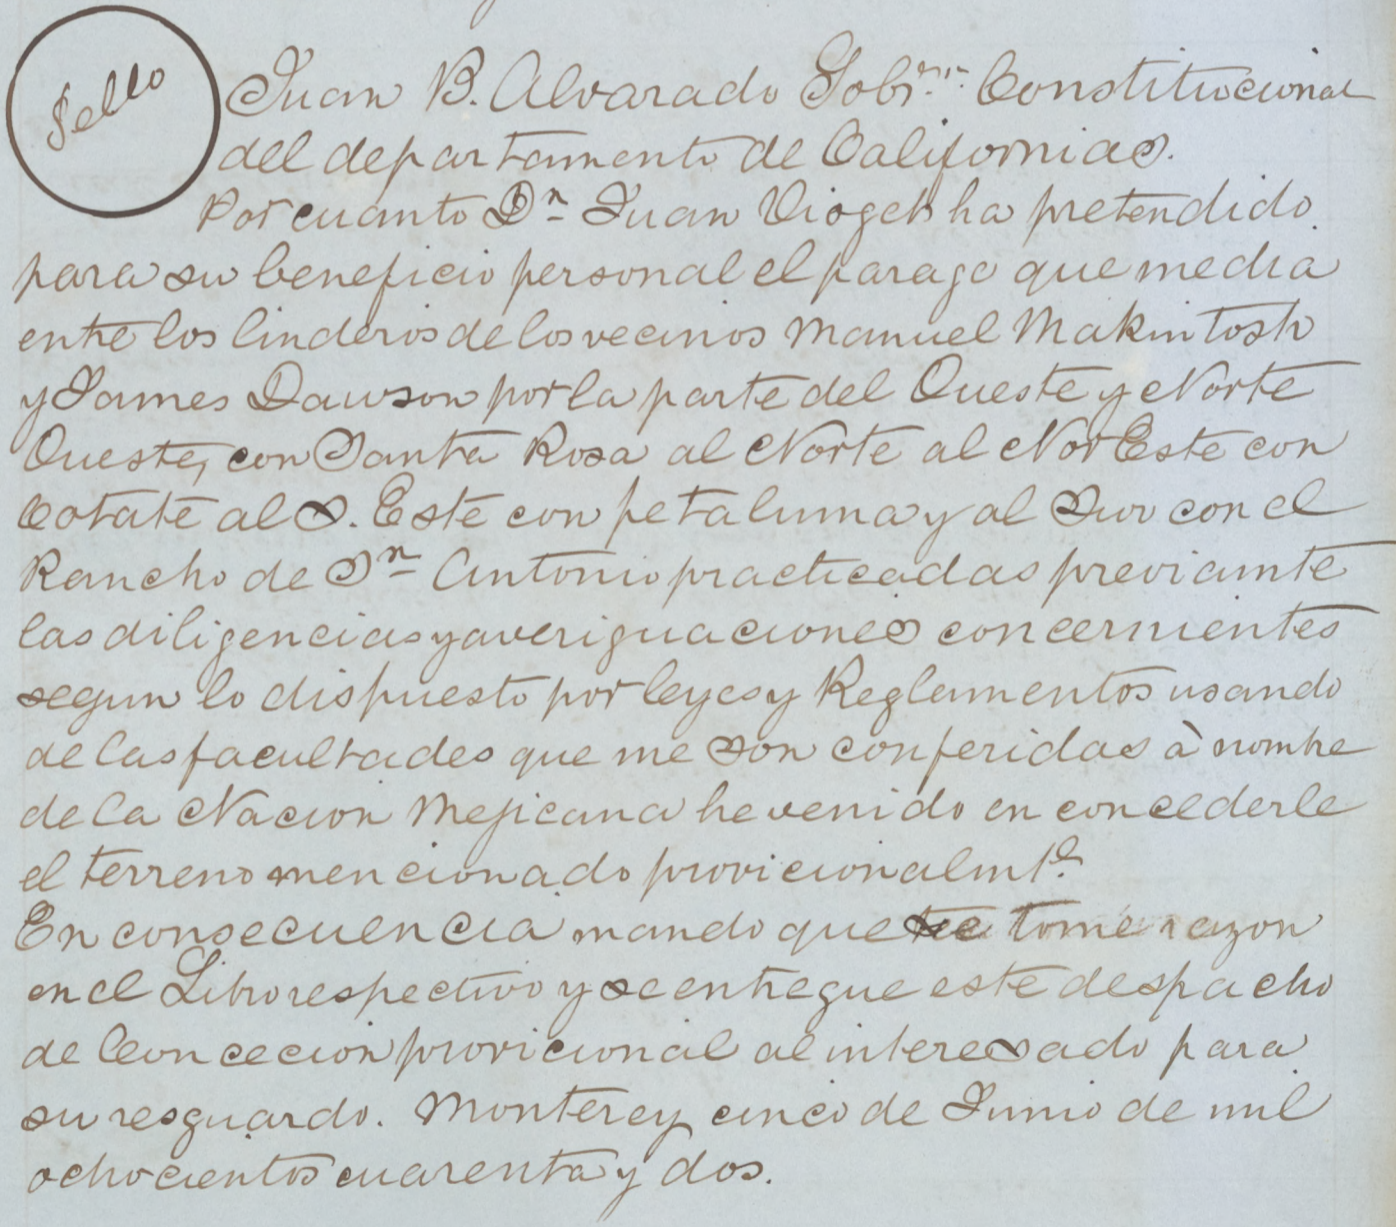 Sello
Juan B. Alvarado Gobr.. Constitucional
del departamento de Californias.
Por cuanto Dn Juan Vioget ha pretendido
para su beneficio personal el parage que media
entre los linderos de los vecinos Manuel Makintosh
y James Dawson por la parte del Oueste y Norte
Oueste, con Santa Rosa al Norte al Nor Este con
Cotate al S. Este con petaluma y al Sur con el
Rancho de Sn Antonio practicadas previamte
las diligencias y averiguaciones concernientes
segun lo dispuesto por leyes y Reglamentos usando
de las facultades que me son conferidas à nombre
de la Nacion Mejicana he venido en concederle
el terreno mencionado provicionalmte.
En consecuencia mando que se tome razon
en el Libro respectivo y se entregue este despacho
de Concecion provicional al interesado para
su resguardo. Monterey cinco de Junio de mil
ochocientos cuarenta y dos.